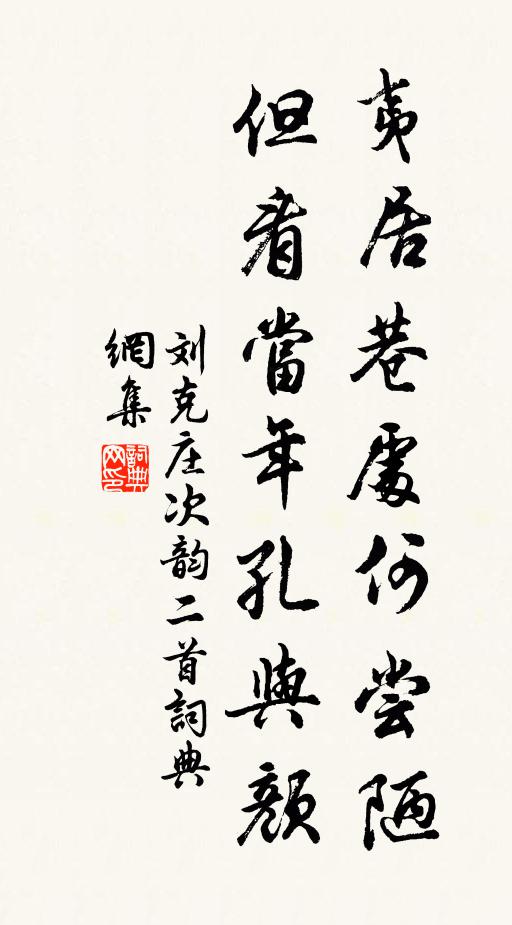 夷居巷處何尝陋
但看當年孔與顔
刘克庄次韵二首詞典
網集
詞典
网印